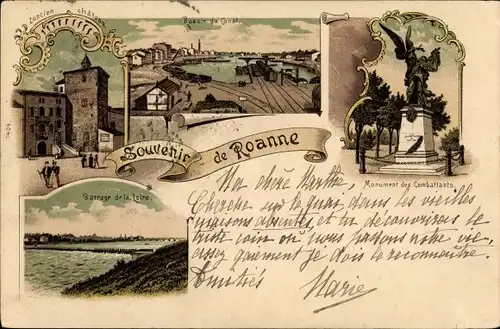 L'ancien château
Bassin du Canal
Souvenir de Roanne
Monument des Combattants.
Barrage de la Loire
Ma chère Marthe,
Cherche sur le quai, dans les vieilles
maisons absentes, et tu découvriras le
petit coin où nous passons notre vie,
assez gaiement je dois le reconnaître.
Amitiés
Marie